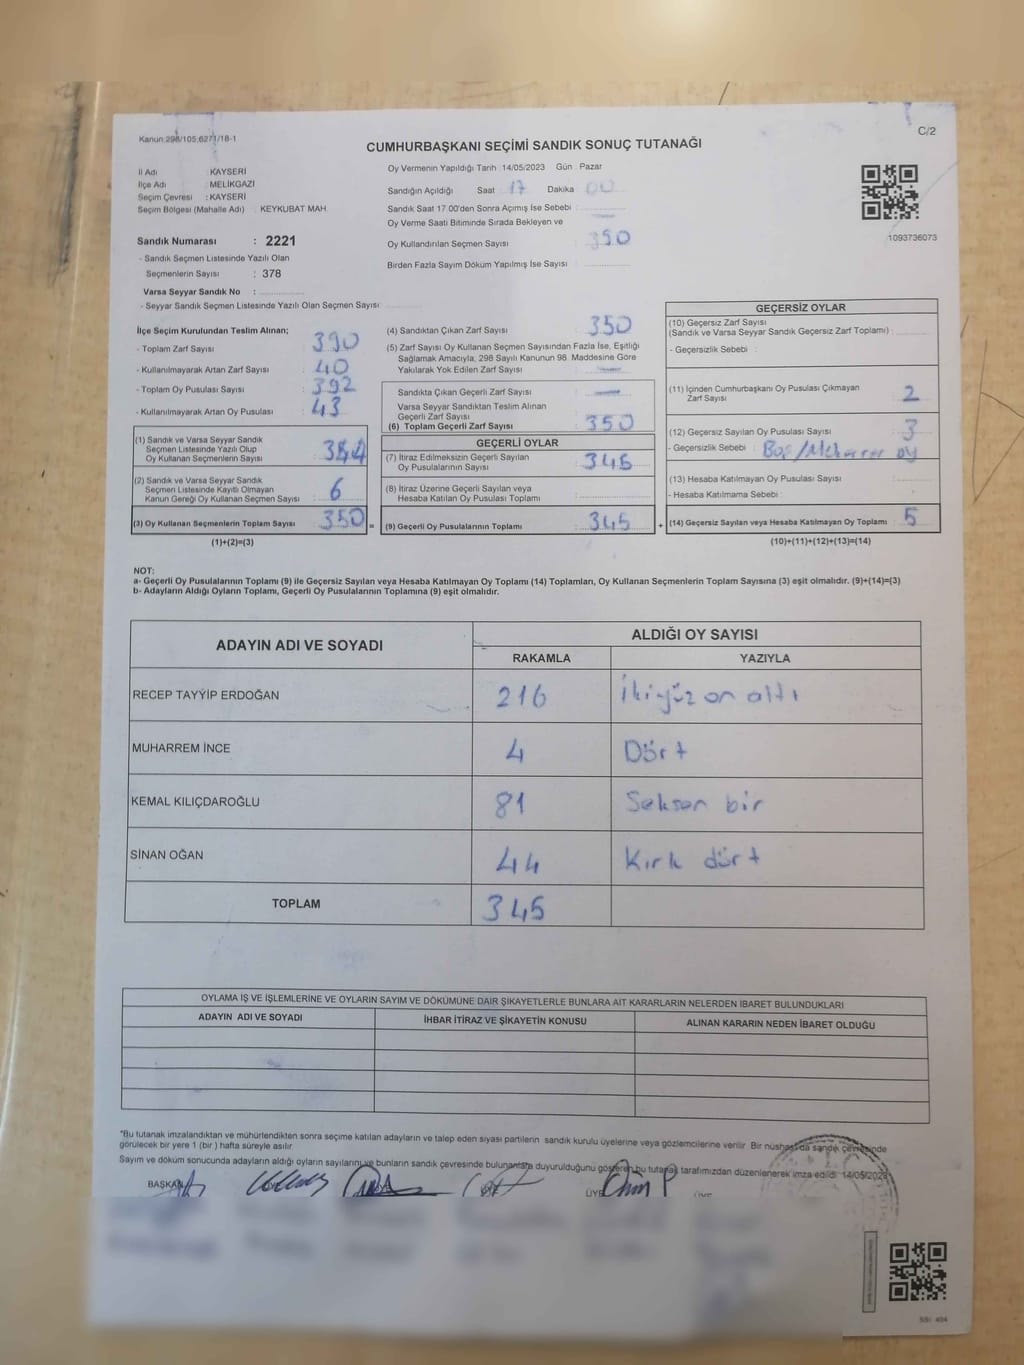 Kanun 298/105,6271/18-1
C/2
CUMHURBAŞKANI SEÇİMİ SANDIK SONUÇ TUTANAĞI
İl Adı KAYSERİ
İlçe Adı : MELİKGAZİ
Seçim Çevresi : KAYSERİ
Seçim Bölgesi (Mahalle Adı) : KEYKUBAT MAH.
Oy Vermenin Yapıldığı Tarih 14/05/2023 Gün : Pazar
Sandığın Açıldığı Saat 17 Dakika 00
Sandık Saat 17.00'den Sonra Açımış İse Sebebi :
Oy Verme Saati Bitiminde Sırada Bekleyen ve
Oy Kullandırılan Seçmen Sayısı 350
Birden Fazla Sayım Döküm Yapılmış İse Sayısı
1093736073
Sandık Numarası : 2221
- Sandık Seçmen Listesinde Yazılı Olan
Seçmenlerin Sayısı : 378
Varsa Seyyar Sandık No :
- Seyyar Sandık Seçmen Listesinde Yazılı Olan Seçmen Sayısı
İlçe Seçim Kurulundan Teslim Alınan;
- Toplam Zarf Sayısı : 390
- Kullanılmayarak Artan Zarf Sayısı : 40
- Toplam Oy Pusulası Sayısı : 392
- Kullanılmayarak Artan Oy Pusulası : 43
(1) Sandık ve Varsa Seyyar Sandık
Seçmen Listesinde Yazılı Olup
Oy Kullanan Seçmenlerin Sayısı
(2) Sandık ve Varsa Seyyar Sandık
Seçmen Listesinde Kayıtlı Olmayan
Kanun Gereği Oy Kullanan Seçmen Sayısı : 6
(3) Oy Kullanan Seçmenlerin Toplam Sayısı 350
(1)+(2)=(3)
(4) Sandıktan Çıkan Zarf Sayısı 350
(5) Zarf Sayısı Oy Kullanan Seçmen Sayısından Fazla İse, Eşitliği
Sağlamak Amacıyla, 298 Sayılı Kanunun 98. Maddesine Göre
Yakılarak Yok Edilen Zarf Sayısı
Sandıkta Çıkan Geçerli Zarf Sayısı
Varsa Seyyar Sandıktan Teslim Alınan
Geçerli Zarf Sayısı
(6) Toplam Geçerli Zarf Sayısı 350
GEÇERLİ OYLAR
(7) İtiraz Edilmeksizin Geçerli Sayılan
Oy Pusulalarının Sayısı 345
(8) İtiraz Üzerine Geçerli Sayılan veya
Hesaba Katılan Oy Pusulası Toplamı
= (9) Geçerli Oy Pusulalarının Toplamı 345
GEÇERSİZ OYLAR
(10) Geçersiz Zarf Sayısı
(Sandık ve Varsa Seyyar Sandık Geçersiz Zarf Toplamı) :
- Geçersizlik Sebebi :
(11) İçinden Cumhurbaşkanı Oy Pusulası Çıkmayan
Zarf Sayısı 2
(12) Geçersiz Sayılan Oy Pusulası Sayısı 3
- Geçersizlik Sebebi : Boş/ oy
(13) Hesaba Katılmayan Oy Pusulası Sayısı :
- Hesaba Katılmama Sebebi :
+ (14) Geçersiz Sayılan veya Hesaba Katılmayan Oy Toplamı : 5
(10)+(11)+(12)+(13)=(14)
NOT:
a- Geçerli Oy Pusulalarının Toplamı (9) ile Geçersiz Sayılan veya Hesaba Katılmayan Oy Toplamı (14) Toplamları, Oy Kullanan Seçmenlerin Toplam Sayısına (3) eşit olmalıdır. (9)+(14)=(3)
b- Adayların Aldığı Oyların Toplamı, Geçerli Oy Pusulalarının Toplamına (9) eşit olmalıdır.
ADAYIN ADI VE SOYADI
ALDIĞI OY SAYISI
RAKAMLA YAZIYLA
RECEP TAYYİP ERDOĞAN 216 İkiyüz on altı
MUHARREM İNCE 4 Dört
KEMAL KILIÇDAROĞLU 81 Seksen bir
SİNAN OĞAN 44 Kırk dört
TOPLAM 345
OYLAMA İŞ VE İŞLEMLERİNE VE OYLARIN SAYIM VE DÖKÜMÜNE DAİR ŞİKAYETLERLE BUNLARA AİT KARARLARIN NELERDEN İBARET BULUNDUKLARI
ADAYIN ADI VE SOYADI İHBAR İTİRAZ VE ŞİKAYETİN KONUSU ALINAN KARARIN NEDEN İBARET OLDUĞU
*Bu tutanak imzalandıktan ve mühürlendikten sonra seçime katılan adayların ve talep eden siyasi partilerin sandık kurulu üyelerine veya gözlemcilerine verilir. Bir nüshası da sandık çevresinde
görülecek bir yere 1 (bir) hafta süreyle asılır.
Sayım ve döküm sonucunda adayların aldığı oyların sayılarını ve bunların sandık çevresinde bulunanlara duyurulduğunu gösteren bu tutanak tarafımızdan düzenlenerek imza edildi. 14/05/2023
BAŞKAN ÜYE ÜYE